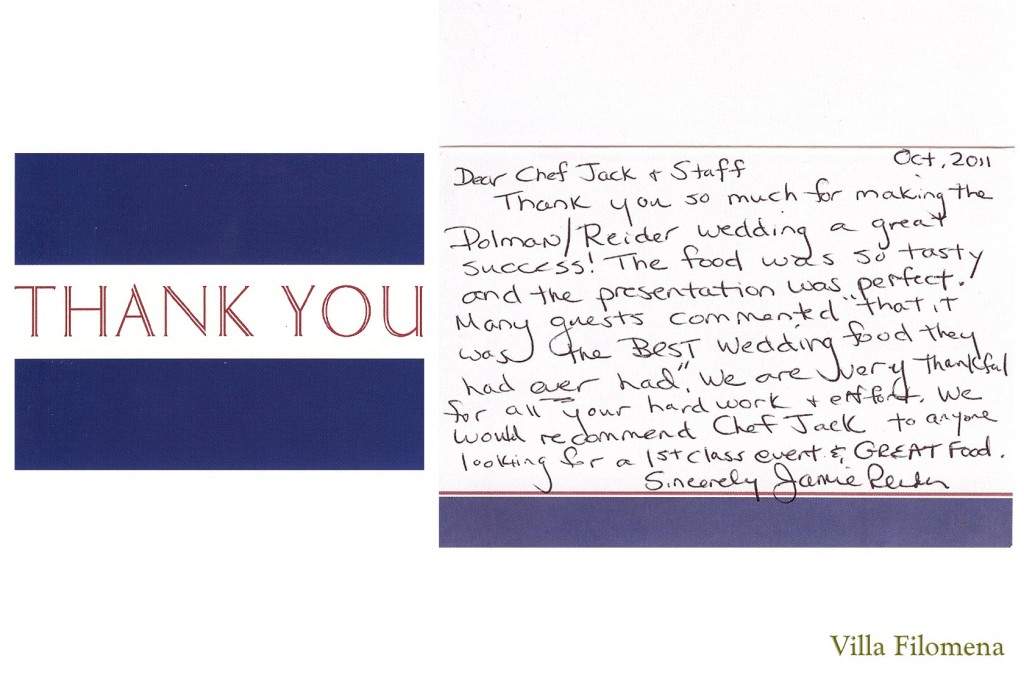 THANK YOU
Oct, 2011
Dear Chef Jack & Staff
Thank you so much for making the
Dolman/Reider wedding a great
success! The food was so tasty
and the presentation was perfect!
Many guests commented "that it
was the BEST wedding food they
had ever had". We are very thankful
for all your hard work & effort. We
would recommend Chef Jack to anyone
looking for a 1st class event & GREAT Food.
Sincerely Jamie Reider
Villa Filomena